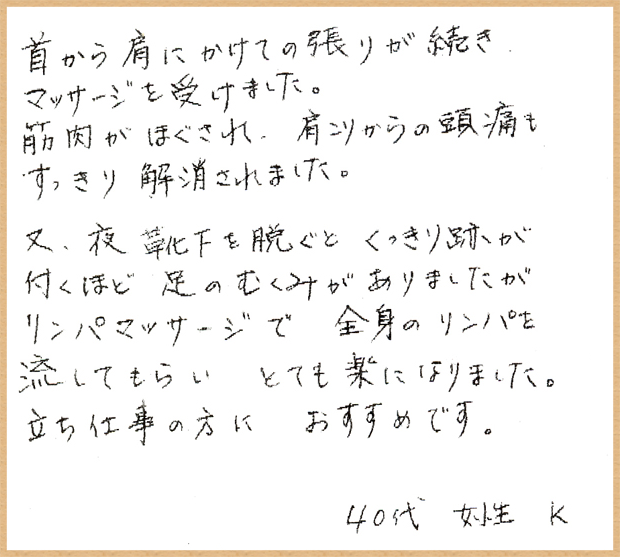 首から肩にかけての張りが続き、
マッサージを受けました。
筋肉がほぐされ、肩こりからの頭痛も
すっきり解消されました。
又、夜靴下を脱ぐとくっきり跡が
付くほど足のむくみがありましたが
リンパマッサージで 全身のリンパを
流してもらい とても楽になりました。
立ち仕事の方に おすすめです。
40代 女性 K